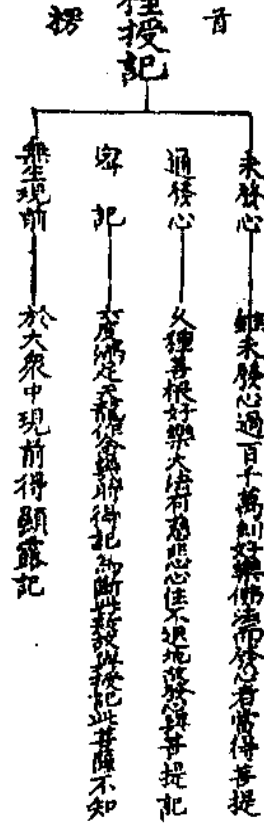 首
種授記
楞
未發心
雖未發心過百千萬劫好樂佛法而發心者當得菩提
適發心
久種善根好樂大法有慈悲心住不退地故發心與菩提記
密記
六度滿足天龍作念幾時得記為斷此疑故與授記此菩薩不知
無生現前
於大眾中現前得顯露記